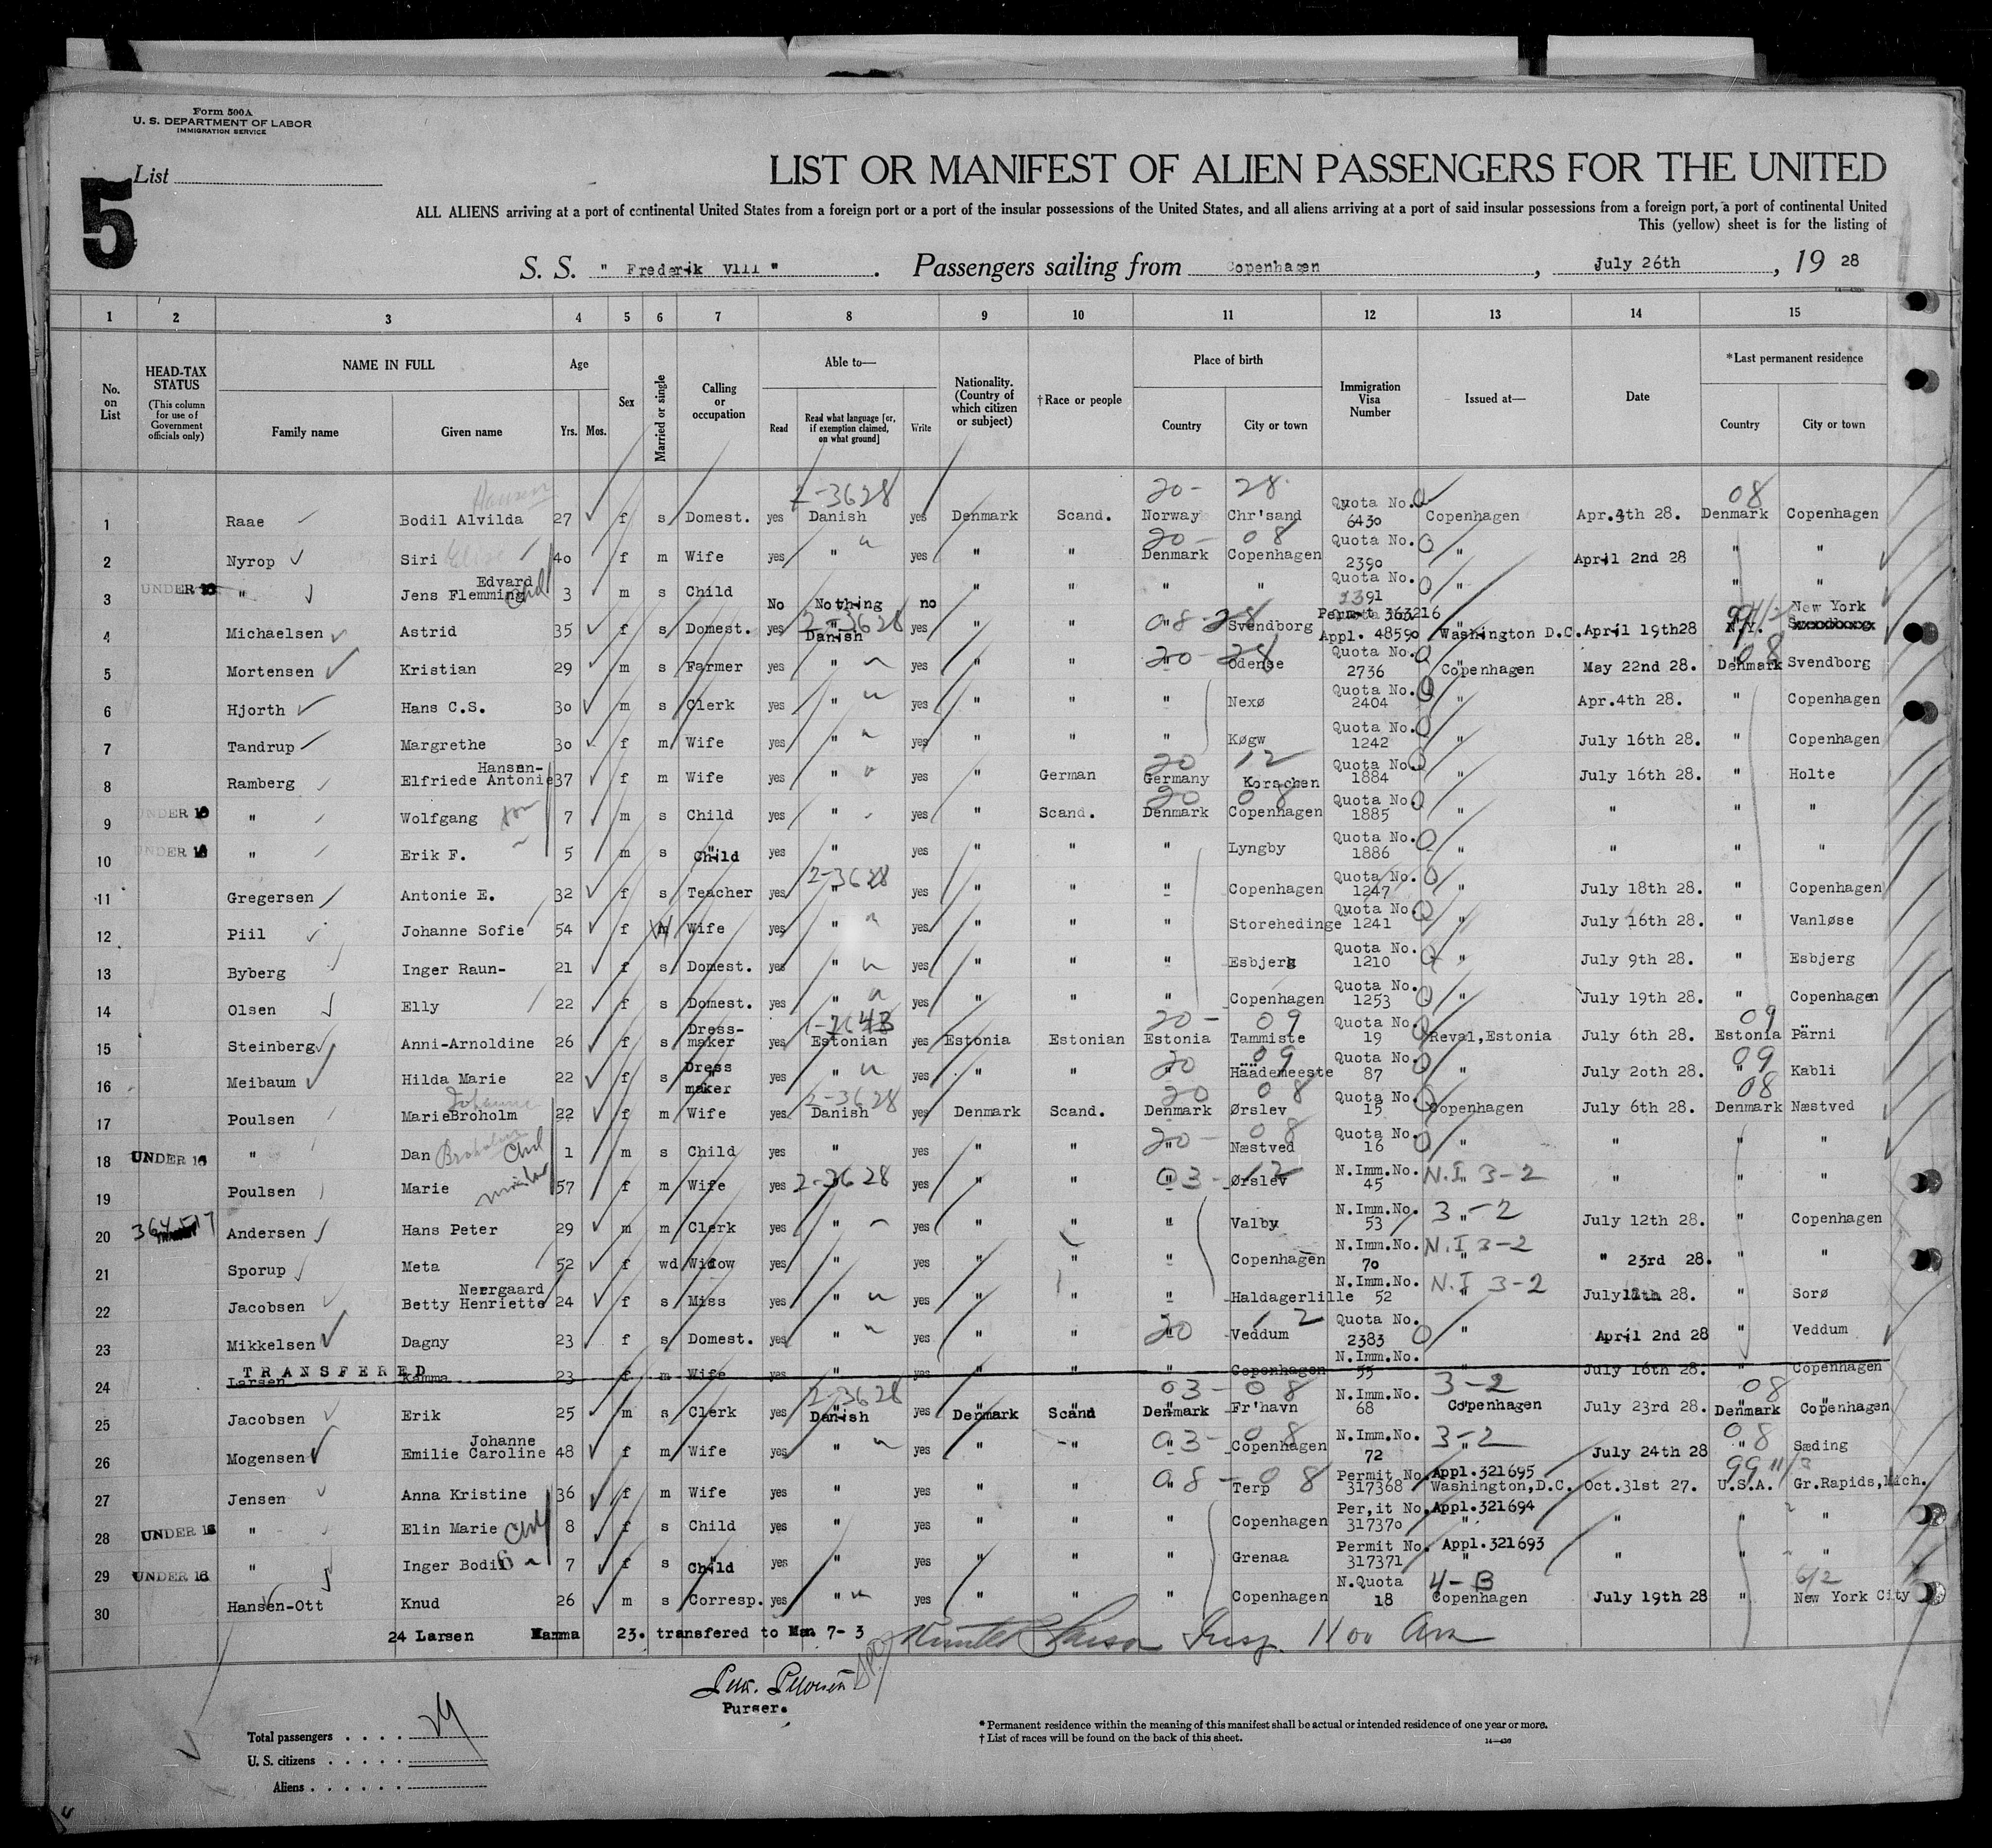 Form 500A
U. S. DEPARTMENT OF LABOR
IMMIGRATION SERVICE
5
List
LIST OR MANIFEST OF ALIEN PASSENGERS FOR THE UNITED
ALL ALIENS arriving at a port of continental United States from a foreign port or a port of the insular possessions of the United States, and all aliens arriving at a port of said insular possessions from a foreign port, a port of continental United
This (yellow) sheet is for the listing of
S. S. " Frederik Vlll " . Passengers sailing from Copenhagen , July 26th , 19 28
1 2 3 4 5 6 7 8 9 10 11 12 13 14 15
No. on List
HEAD-TAX STATUS (This column for use of Government officials only)
NAME IN FULL Family name Given name
Age Yrs. Mos.
Sex
Married or single
Calling or occupation
Able to— Read Read what language [or, if exemption claimed, on what ground] Write
Nationality. (Country of which citizen or subject)
†Race or people
Place of birth Country City or town
Immigration Visa Number
Issued at—
Date
*Last permanent residence Country City or town
Hansen 2-3628 20- 28 08
1 Raae Bodil Alvilda 27 f s Domest. yes Danish yes Denmark Scand. Norway Chr'sand Quota No. 6430 Copenhagen Apr.4th 28. Denmark Copenhagen
20- 08
2 Nyrop Siri Elise 40 f m Wife yes " yes " " Denmark Copenhagen Quota No. 2390 " April 2nd 28 " "
3 UNDER 16 " Jens Flemming Edvard Chd 3 m s Child No Nothing no " " " " Quota No. 2391 " " "
4 Michaelsen Astrid 35 f s Domest. yes 2-3628 Danish yes " " 08-28 " Svendborg Permit 363216 Appl. 48590 Washington D.C. April 19th28 N.Y. New York
5 Mortensen Kristian 29 m s Farmer yes " yes " " 20-28 " Odense Quota No. 2736 Copenhagen May 22nd 28. Denmark 08 Svendborg
6 Hjorth Hans C.S. 30 m s Clerk yes " yes " " " Nexø Quota No. 2404 " Apr.4th 28. " Copenhagen
7 Tandrup Margrethe 30 f m Wife yes " yes " " " Køgw Quota No. 1242 " July 16th 28. " Copenhagen
8 Ramberg Hansen- Elfriede Antonie 37 f m Wife yes " yes " German 20 12 Germany Korachen Quota No. 1884 " July 16th 28. " Holte
9 UNDER 16 " Wolfgang son 7 m s Child yes " yes " Scand. 20 08 Denmark Copenhagen Quota No. 1885 " " " "
10 UNDER 16 " Erik F. 5 m s Child yes " yes " " " Lyngby Quota No. 1886 " " " "
11 Gregersen Antonie E. 32 f s Teacher yes 2-3628 " yes " " " Copenhagen Quota No. 1247 " July 18th 28. " Copenhagen
12 Piil Johanne Sofie 54 f m Wife yes " yes " " " Storehedinge Quota No. 1241 " July 16th 28. " Vanløse
13 Byberg Inger Raun- 21 f s Domest. yes " yes " " " Esbjerg Quota No. 1210 " July 9th 28. " Esbjerg
14 Olsen Elly 22 f s Domest. yes " yes " " " Copenhagen Quota No. 1253 " July 19th 28. " Copenhagen
15 Steinberg Anni-Arnoldine 26 f s Dress-maker yes Estonian yes Estonia Estonian 20- 09 Estonia Tammiste Quota No. 19 Reval,Estonia July 6th 28. 09 Estonia Pärni
16 Meibaum Hilda Marie 22 f s Dress maker yes " yes " " 20 09 Häädemeeste Quota No. 87 " July 20th 28. 09 " Kabli
17 Poulsen Johanne MarieBroholm 22 f m Wife yes 2-3628 Danish yes Denmark Scand. 20 08 Denmark Ørslev Quota No. 15 Copenhagen July 6th 28. 08 Denmark Næstved
18 UNDER 16 " Dan Broholm Chd 1 m s Child yes " yes " " 20- 08 " Næstved Quota No. 16 " " " "
19 Poulsen Marie 57 f m Wife yes 2-3628 yes " " 03-12 " Ørslev N.Imm.No. 45 N.I. 3-2 " " " "
20 Andersen Hans Peter 29 m m Clerk yes " yes " " " Valby N.Imm.No. 53 3-2 " July 12th 28. " Copenhagen
21 Sporup Meta 52 f wd Widow yes " yes " " " Copenhagen N.Imm.No. 70 N.I 3-2 " " 23rd 28. " "
22 Jacobsen Neergaard Betty Henriette 24 f s Miss yes " yes " " " Haldagerlille N.Imm.No. 52 N.I 3-2 " July 12th 28. " Sorø
23 Mikkelsen Dagny 23 f s Domest. yes " yes " " 20 12 " Veddum Quota No. 2383 " April 2nd 28 " Veddum
TRANSFERED
24 Larsen Kamma 23 f m Wife yes " yes " " " Copenhagen N.Imm.No. 55 " July 16th 28. " Copenhagen
25 Jacobsen Erik 25 m s Clerk yes 2-3628 Danish yes Denmark Scand 03-08 Denmark Fr'havn N.Imm.No. 68 3-2 Copenhagen July 23rd 28. 08 Denmark Copenhagen
26 Mogensen Johanne Emilie Caroline 48 f m Wife yes " yes " " 03-08 " Copenhagen N.Imm.No. 72 3-2 " July 24th 28 08 " Sæding
27 Jensen Anna Kristine 36 f m Wife yes " yes " " 08-08 " Terp Permit No. 317368 Appl.321695 Washington,D.C. Oct.31st 27. 99 U.S.A. Gr.Rapids,Mich.
28 UNDER 16 " Elin Marie Chd 8 f s Child yes " yes " " " Copenhagen Per,it No. 317370 Appl.321694 " " " "
29 UNDER 16 " Inger Bodil 7 f s Child yes " yes " " " Grenaa Permit No. 317371 Appl.321693 " " " "
30 Hansen-Ott Knud 26 m s Corresp. yes " yes " " " Copenhagen N.Quota 18 4-B Copenhagen July 19th 28 " 612 New York City
24 Larsen Kamma 23. transfered to Man 7- 3 Insp. 1100 Am
Purser.
Total passengers . . . . 29
U. S. citizens . . . . .
Aliens . . . . . .
* Permanent residence within the meaning of this manifest shall be actual or intended residence of one year or more.
† List of races will be found on the back of this sheet.
14—430